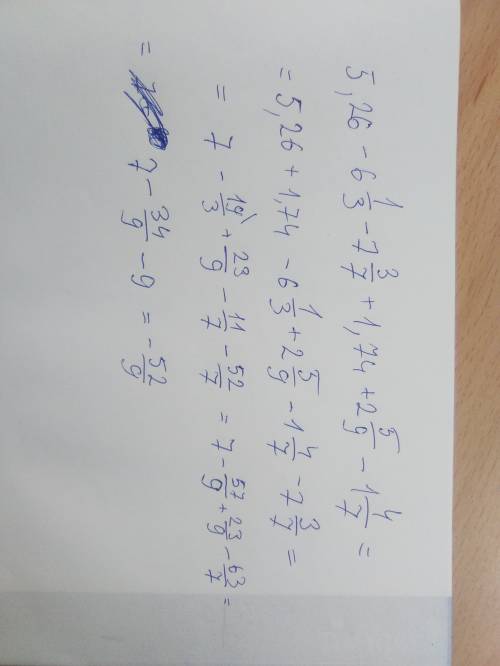 5,26 - 6 1/3 - 7 3/7 + 1,74 + 2 5/9 - 1 4/7 =
= 5,26 + 1,74 - 6 1/3 + 2 5/9 - 1 4/7 - 7 3/7 =
= 7 - 19/3 + 23/9 - 11/7 - 52/7 = 7 - 57/9 + 23/9 - 63/7 =
= 7 - 34/9 - 9 = - 52/9